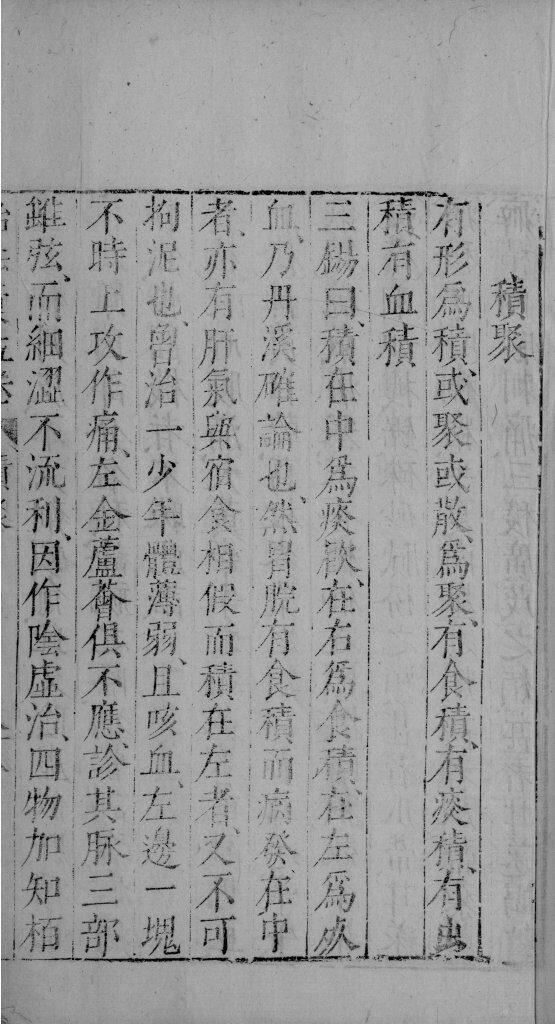 積聚
有形爲積、或聚或散、爲聚、有食積、有痰積、有虫
積有血積
三錫曰、積在中爲痰飲、在右爲食積、在左爲死
血、乃丹溪確論也、然胃脘有食積而病發、在中
者、亦有肝氣與宿食相假而積在左者、又不可
拘泥也、曾治一少年體薄弱、且咳血、左邊一塊
不時上攻作痛、左金蘆薈俱不應、診其脉三部
雖弦、而細澀不流利、因作陰虛治、四物加知栢